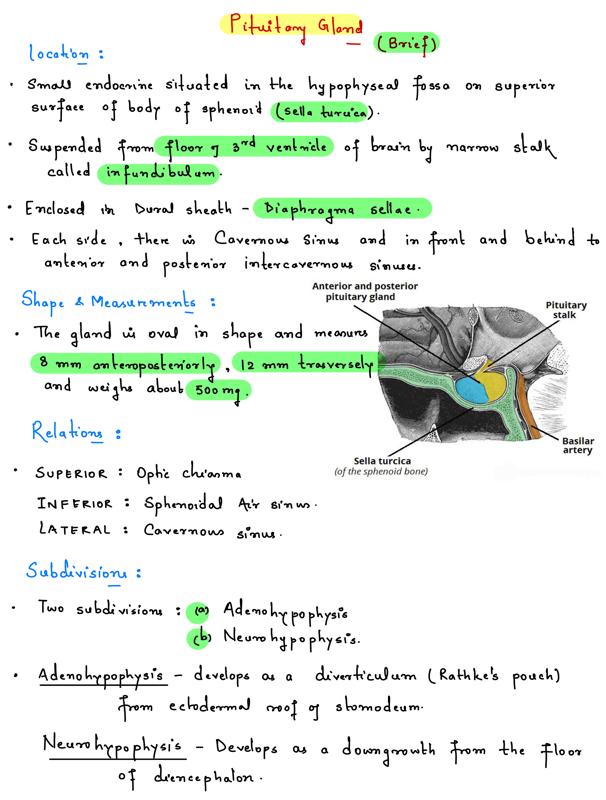 Pituitary Gland
(Brief)
Location :
· Small endocrine situated in the hypophyseal fossa on superior
surface of body of sphenoid (sella turcica).
· Suspended from floor of 3rd ventricle of brain by narrow stalk
called infundibulum.
· Enclosed in Dural sheath - Diaphragma sellae.
· Each side, there is Cavernous Sinus and in front and behind to
anterior and posterior intercavernous sinuses.
Shape & Measurements :
· The gland is oval in shape and measures
8 mm anteroposteriorly, 12 mm trasversely
and weighs about 500 mg.
Anterior and posterior
pituitary gland
Pituitary
stalk
Basilar
artery
Sella turcica
(of the sphenoid bone)
Relations :
· SUPERIOR : Optic chiasma
INFERIOR : Sphenoidal Air sinus.
LATERAL : Cavernous sinus.
Subdivisions :
· Two subdivisions : (a) Adenohypophysis
(b) Neurohypophysis.
· Adenohypophysis - develops as a diverticulum (Rathke's pouch)
from ectodermal roof of stomodeum.
Neurohypophysis - Develops as a downgrowth from the floor
of diencephalon.